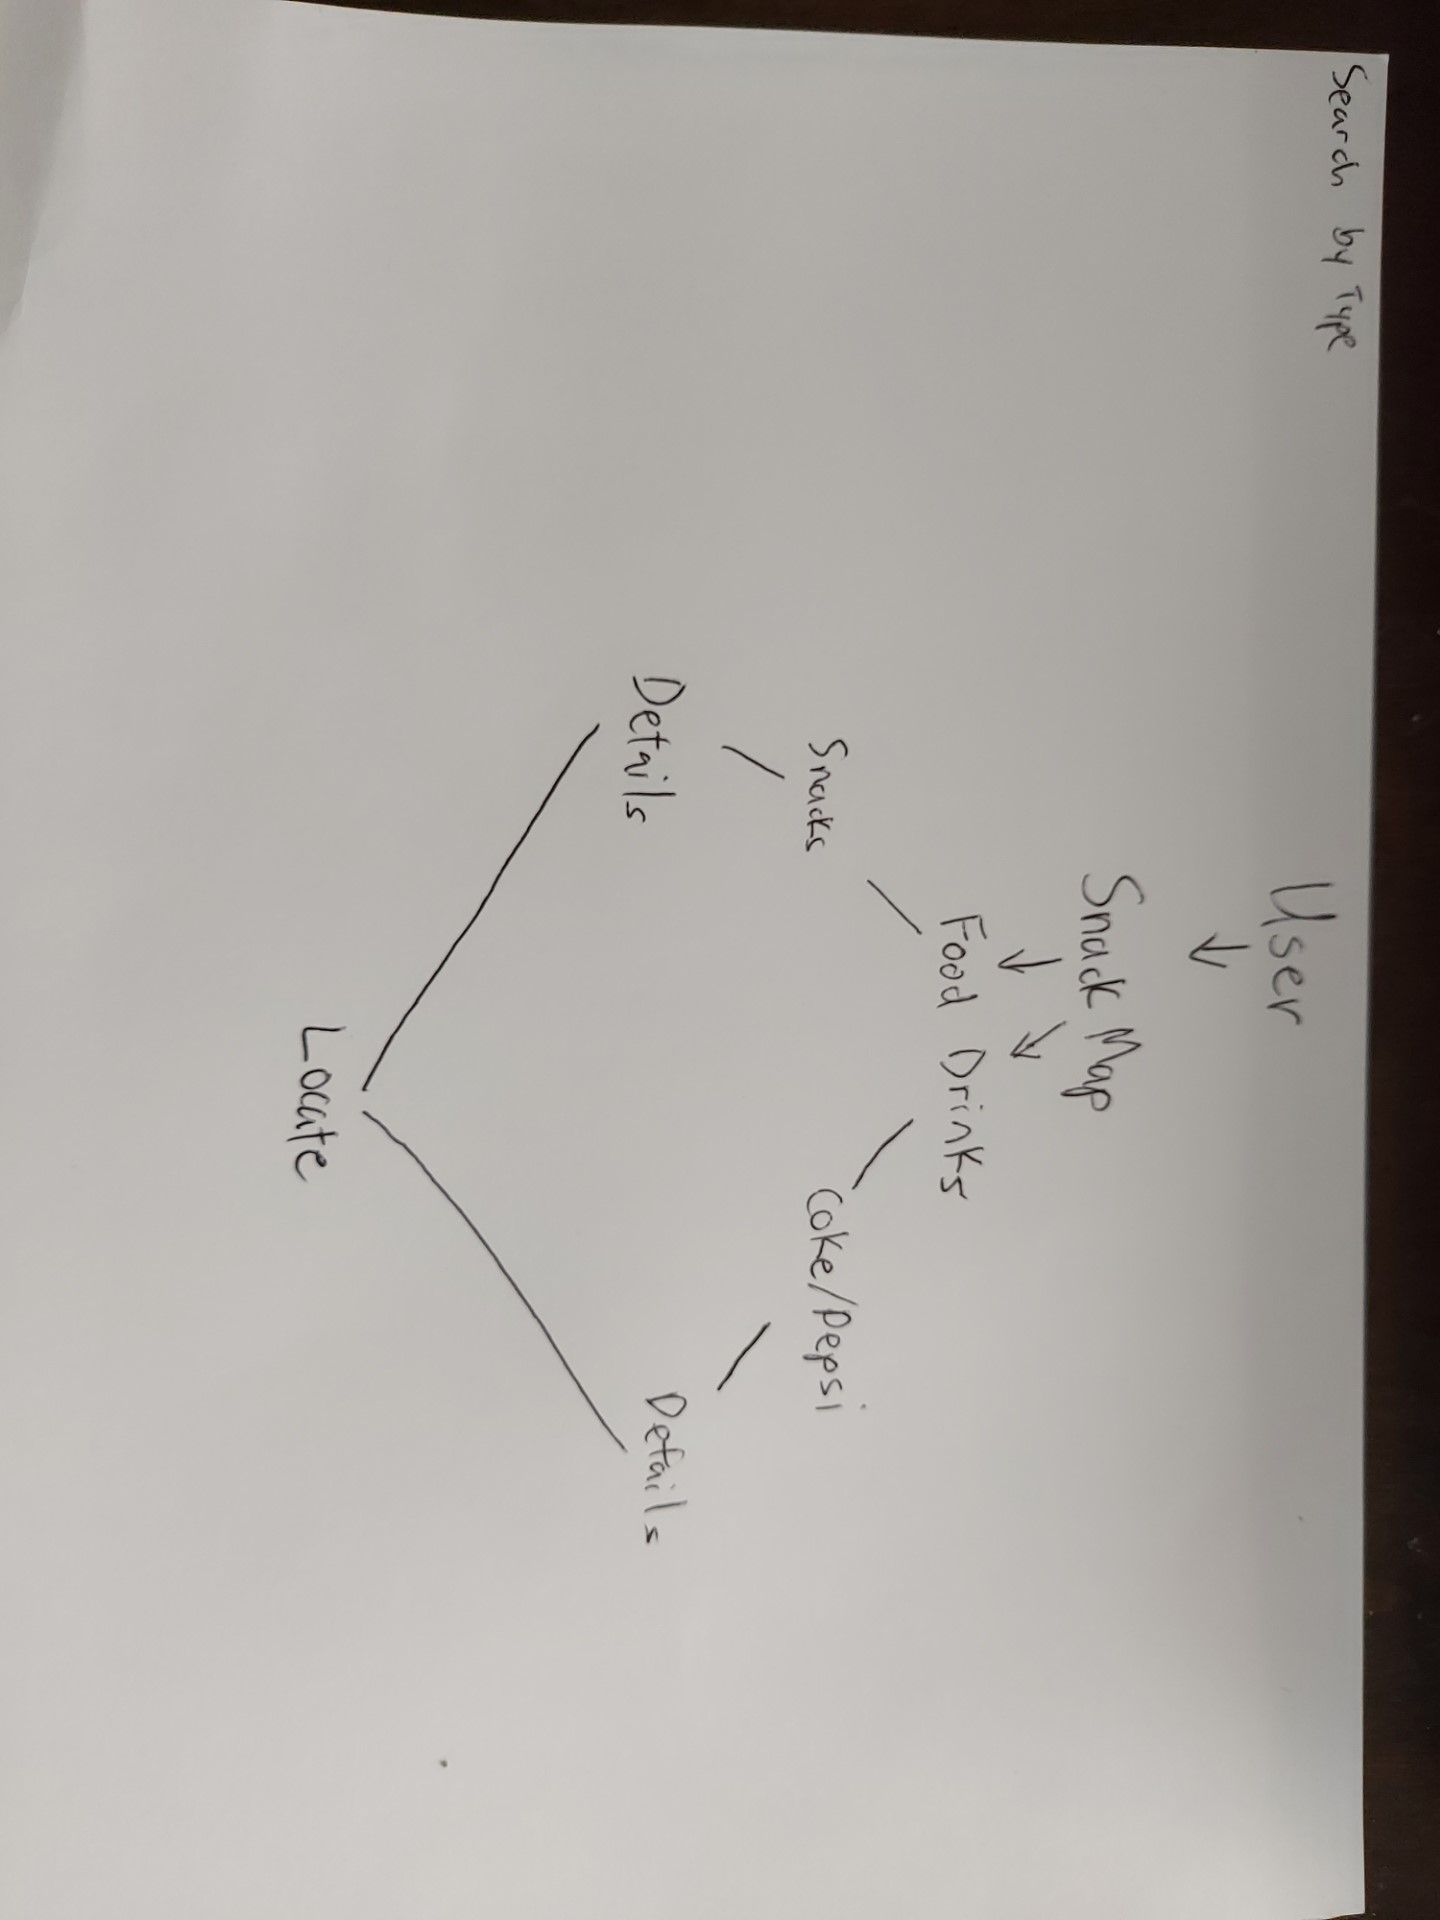 Search by Type
User
↓
Snack Map
↓ ↓
Food Drinks
Snacks Coke/Pepsi
Details Details
Locate